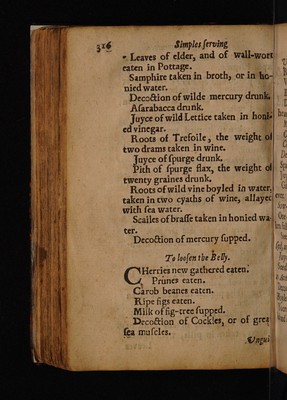 316 Simples serving
Leaves of elder, and of wall-wort
eaten in Pottage.
Samphire taken in broth, or in ho-
nied water.
Decoction of wilde mercury drunk.
Asarabacca drunk.
Juyce of wild Lettice taken in honi-
ed vinegar.
Roots of Trefoile, the weight of
two drams taken in wine.
Juyce of spurge drunk.
Pith of spurge flax, the weight of
twenty graines drunk.
Roots of wild vine boyled in water,
taken in two cyaths of wine, allayed
with sea water.
Scailes of brasse taken in honied wa-
ter.
Decoction of mercury supped.
To loosen the Belly.
CHerries new gathered eaten.
Prunes eaten.
Carob beanes eaten.
Ripe figs eaten.
Milk of fig-tree supped.
Decoction of Cockles, or of great
sea muscles.
Ungui